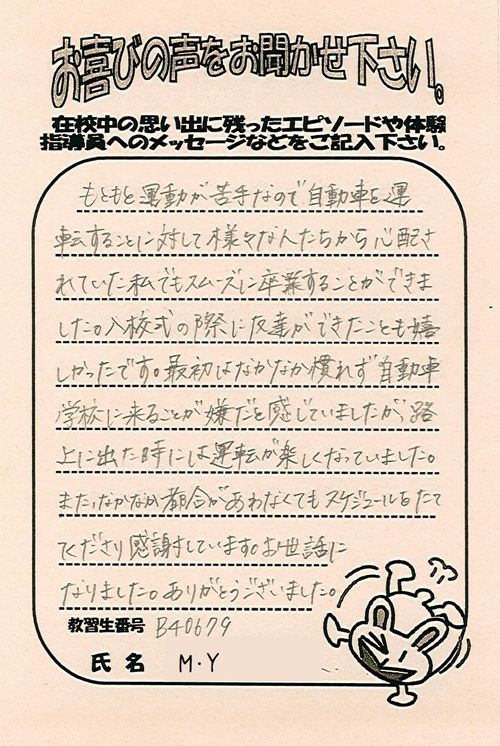 お喜びの声をお聞かせ下さい。
在校中の思い出に残ったエピソードや体験
指導員へのメッセージなどをご記入下さい。
もともと運動が苦手なので自動車を運
転することに対して様々な人たちから心配さ
れていた私でもスムーズに卒業することができま
した。入校式の際に友達ができたことも嬉
しかったです。最初はなかなか慣れず自動車
学校に来ることが嫌だと感じていましたが、路
上に出た時には運転が楽しくなっていました。
また、なかなか都合があわなくてもスケジュールをたて
てくださり感謝しています。お世話に
なりました。ありがとうございました。
教習生番号 B40679
氏名 M・Y